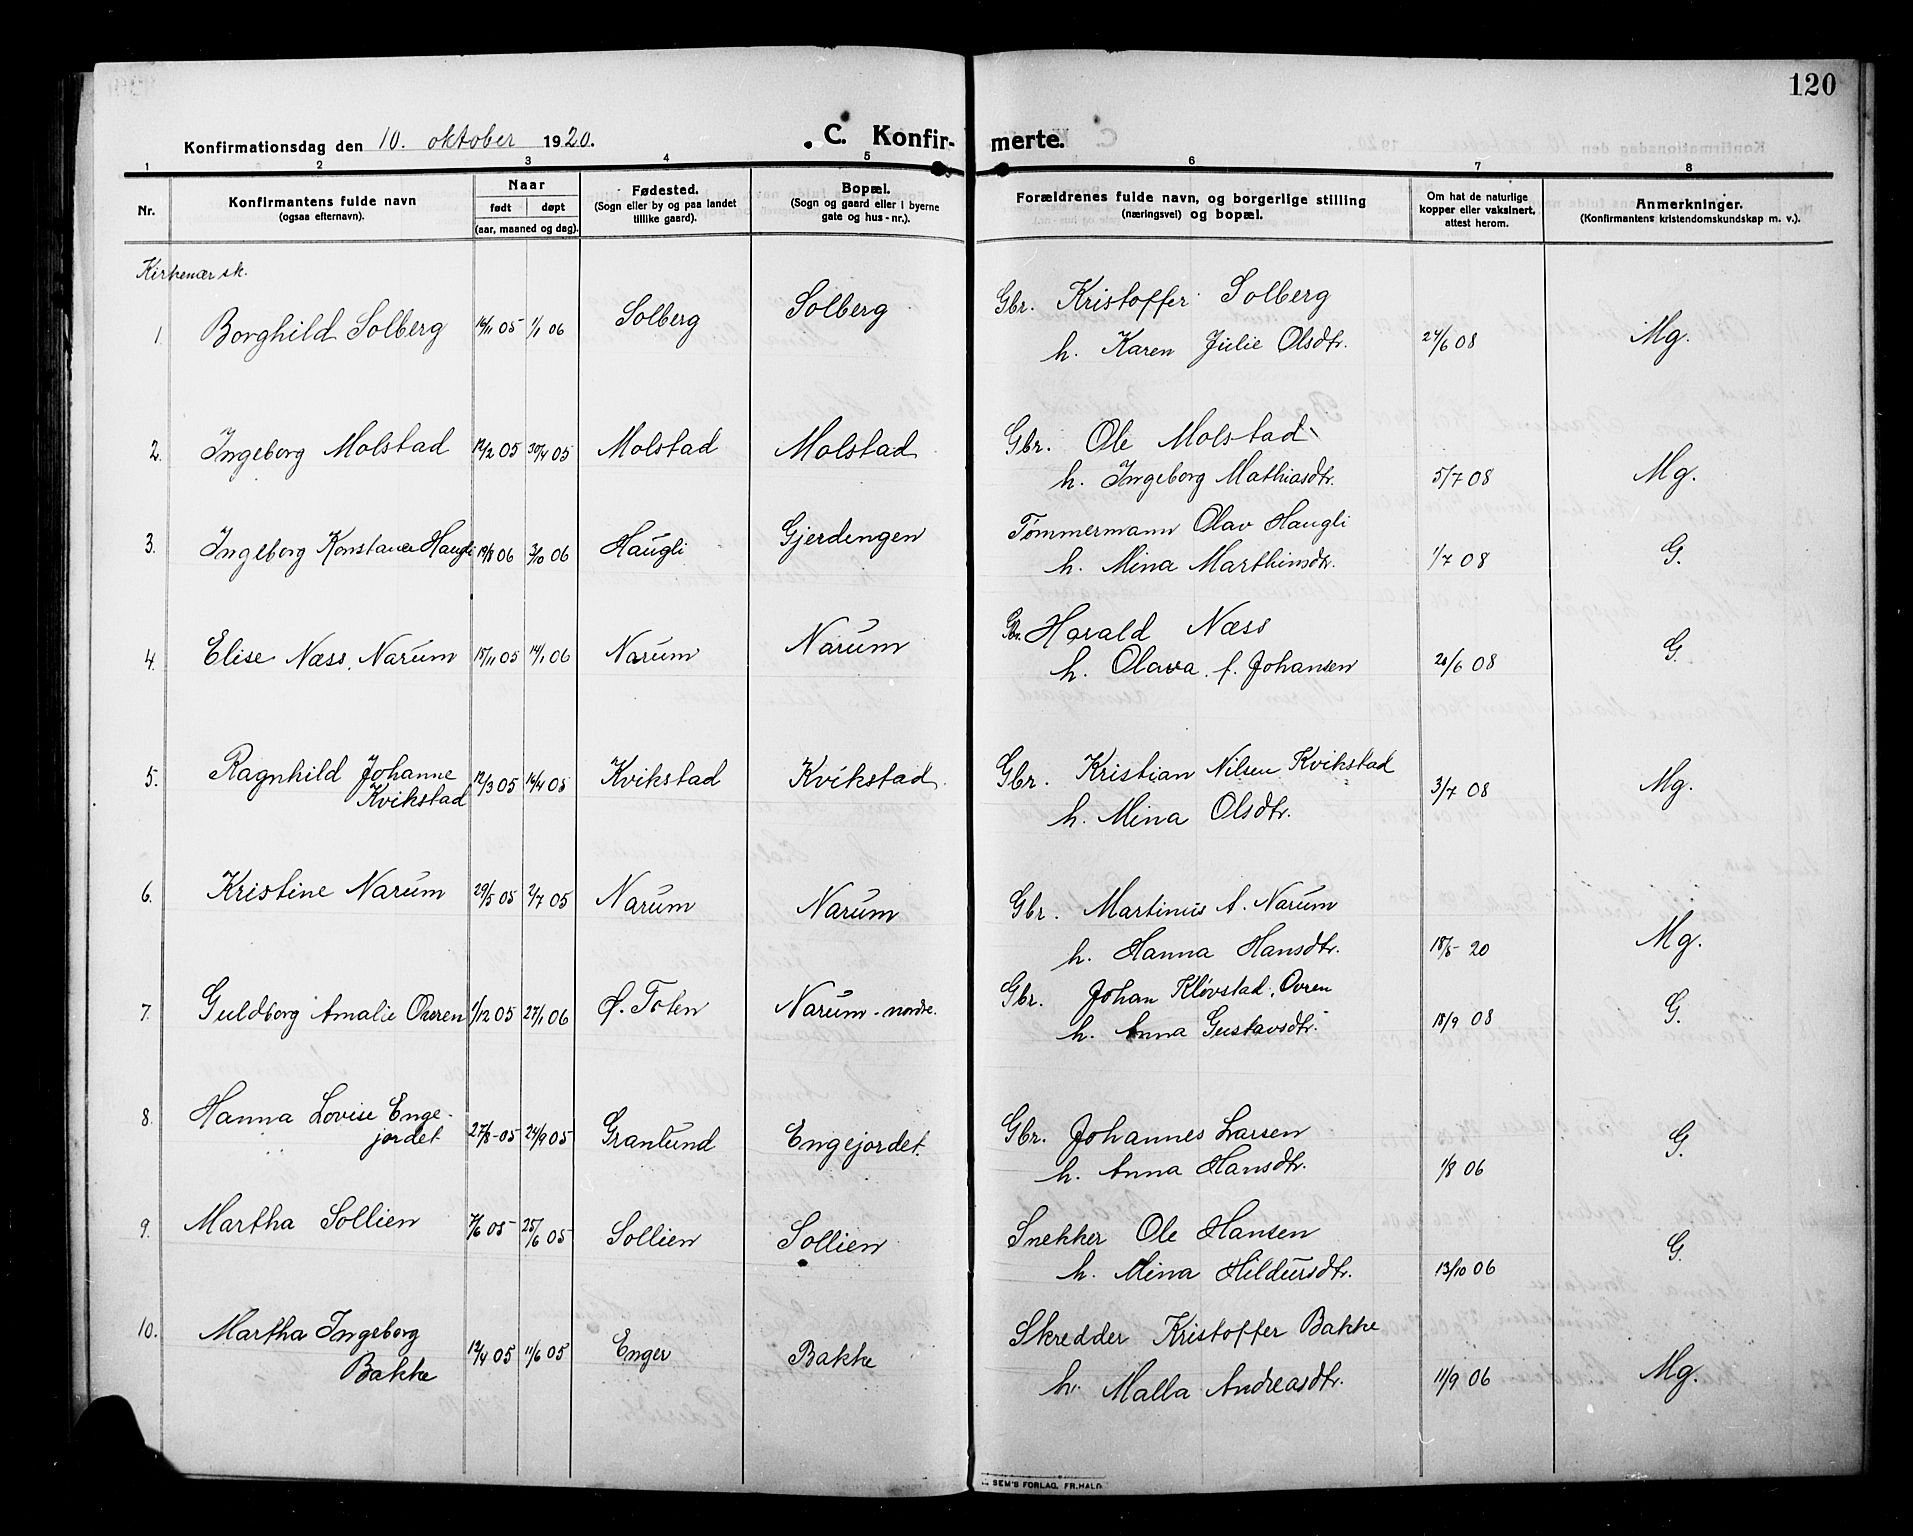 120
Konfirmationsdag den 10. oktober 1920.
C. Konfirmerte.
1 2 3 4 5 6 7 8
Nr.
Konfirmantens fulde navn
(ogsaa efternavn).
Naar
født døpt
(aar, maaned og dag).
Fødested.
(Sogn eller by og paa landet
tillike gaard).
Bopæl.
(Sogn og gaard eller i byerne
gate og hus-nr.).
Forældrenes fulde navn, og borgerlige stilling
(næringsvei) og bopæl.
Om hat de naturlige
kopper eller vaksinert,
attest herom.
Anmerkninger.
(Konfirmantens kristendomskundskap m. v.).
Kirkenær sk.
1. Borghild Solberg 14/11 05 1/1 06 Solberg Solberg Gbr. Kristoffer Solberg
h. Karen Julie Olsdtr. 24/6 08 Mg.
2. Ingeborg Molstad 12/2 05 30/4 05 Molstad Molstad Gbr. Ole Molstad
h. Ingeborg Mathiasdtr. 5/7 08 Mg.
3. Ingeborg Konstance Haugli 19/8 06 3/10 06 Haugli Gjerdengen Tømmermann Olav Haugli
h. Mina Marthinsdtr. 1/7 08 G.
4. Elise Næss, Narum 18/11 05 14/1 06 Narum Narum Gbr. Harald Næss
h. Olava f. Johansen /6 08 G.
5. Ragnhild Johanne
Kvikstad 12/3 05 16/4 05 Kvikstad Kvikstad Gbr. Kristian Nilsen Kvikstad
h. Mina Olsdtr. 3/7 08 Mg.
6. Kristine Narum 29/5 05 2/7 05 Narum Narum Gbr. Martinus A. Narum
h. Hanna Hansdtr. 18/5 20 Mg.
7. Guldborg Amalie Ovren 1/12 05 27/1 06 Ø. Toten Narum - nordre. Gbr. Johan Kløvstad, Ovren
h. Anna Gustavsdtr. 18/9 08 G.
8. Hanna Lovise Enge-
jordet 27/8-05 24/9 05 Granlund Engejordet. Gbr. Johannes Larsen
h. Anna Hansdtr. 1/8 06 G.
9. Martha Sollien 7/6 05 25/6 05 Sollien Sollien Snekker Ole Hansen
h. Mina Hildursdtr. 13/10 06 G.
10. Martha Ingeborg
Bakke 12/4 05 11/6 05 Enger Bakke Skredder Kristoffer Bakke
h. Malla Andreasdtr. 11/9 06 Mg.
SEM'S FORLAG, FR.HALD